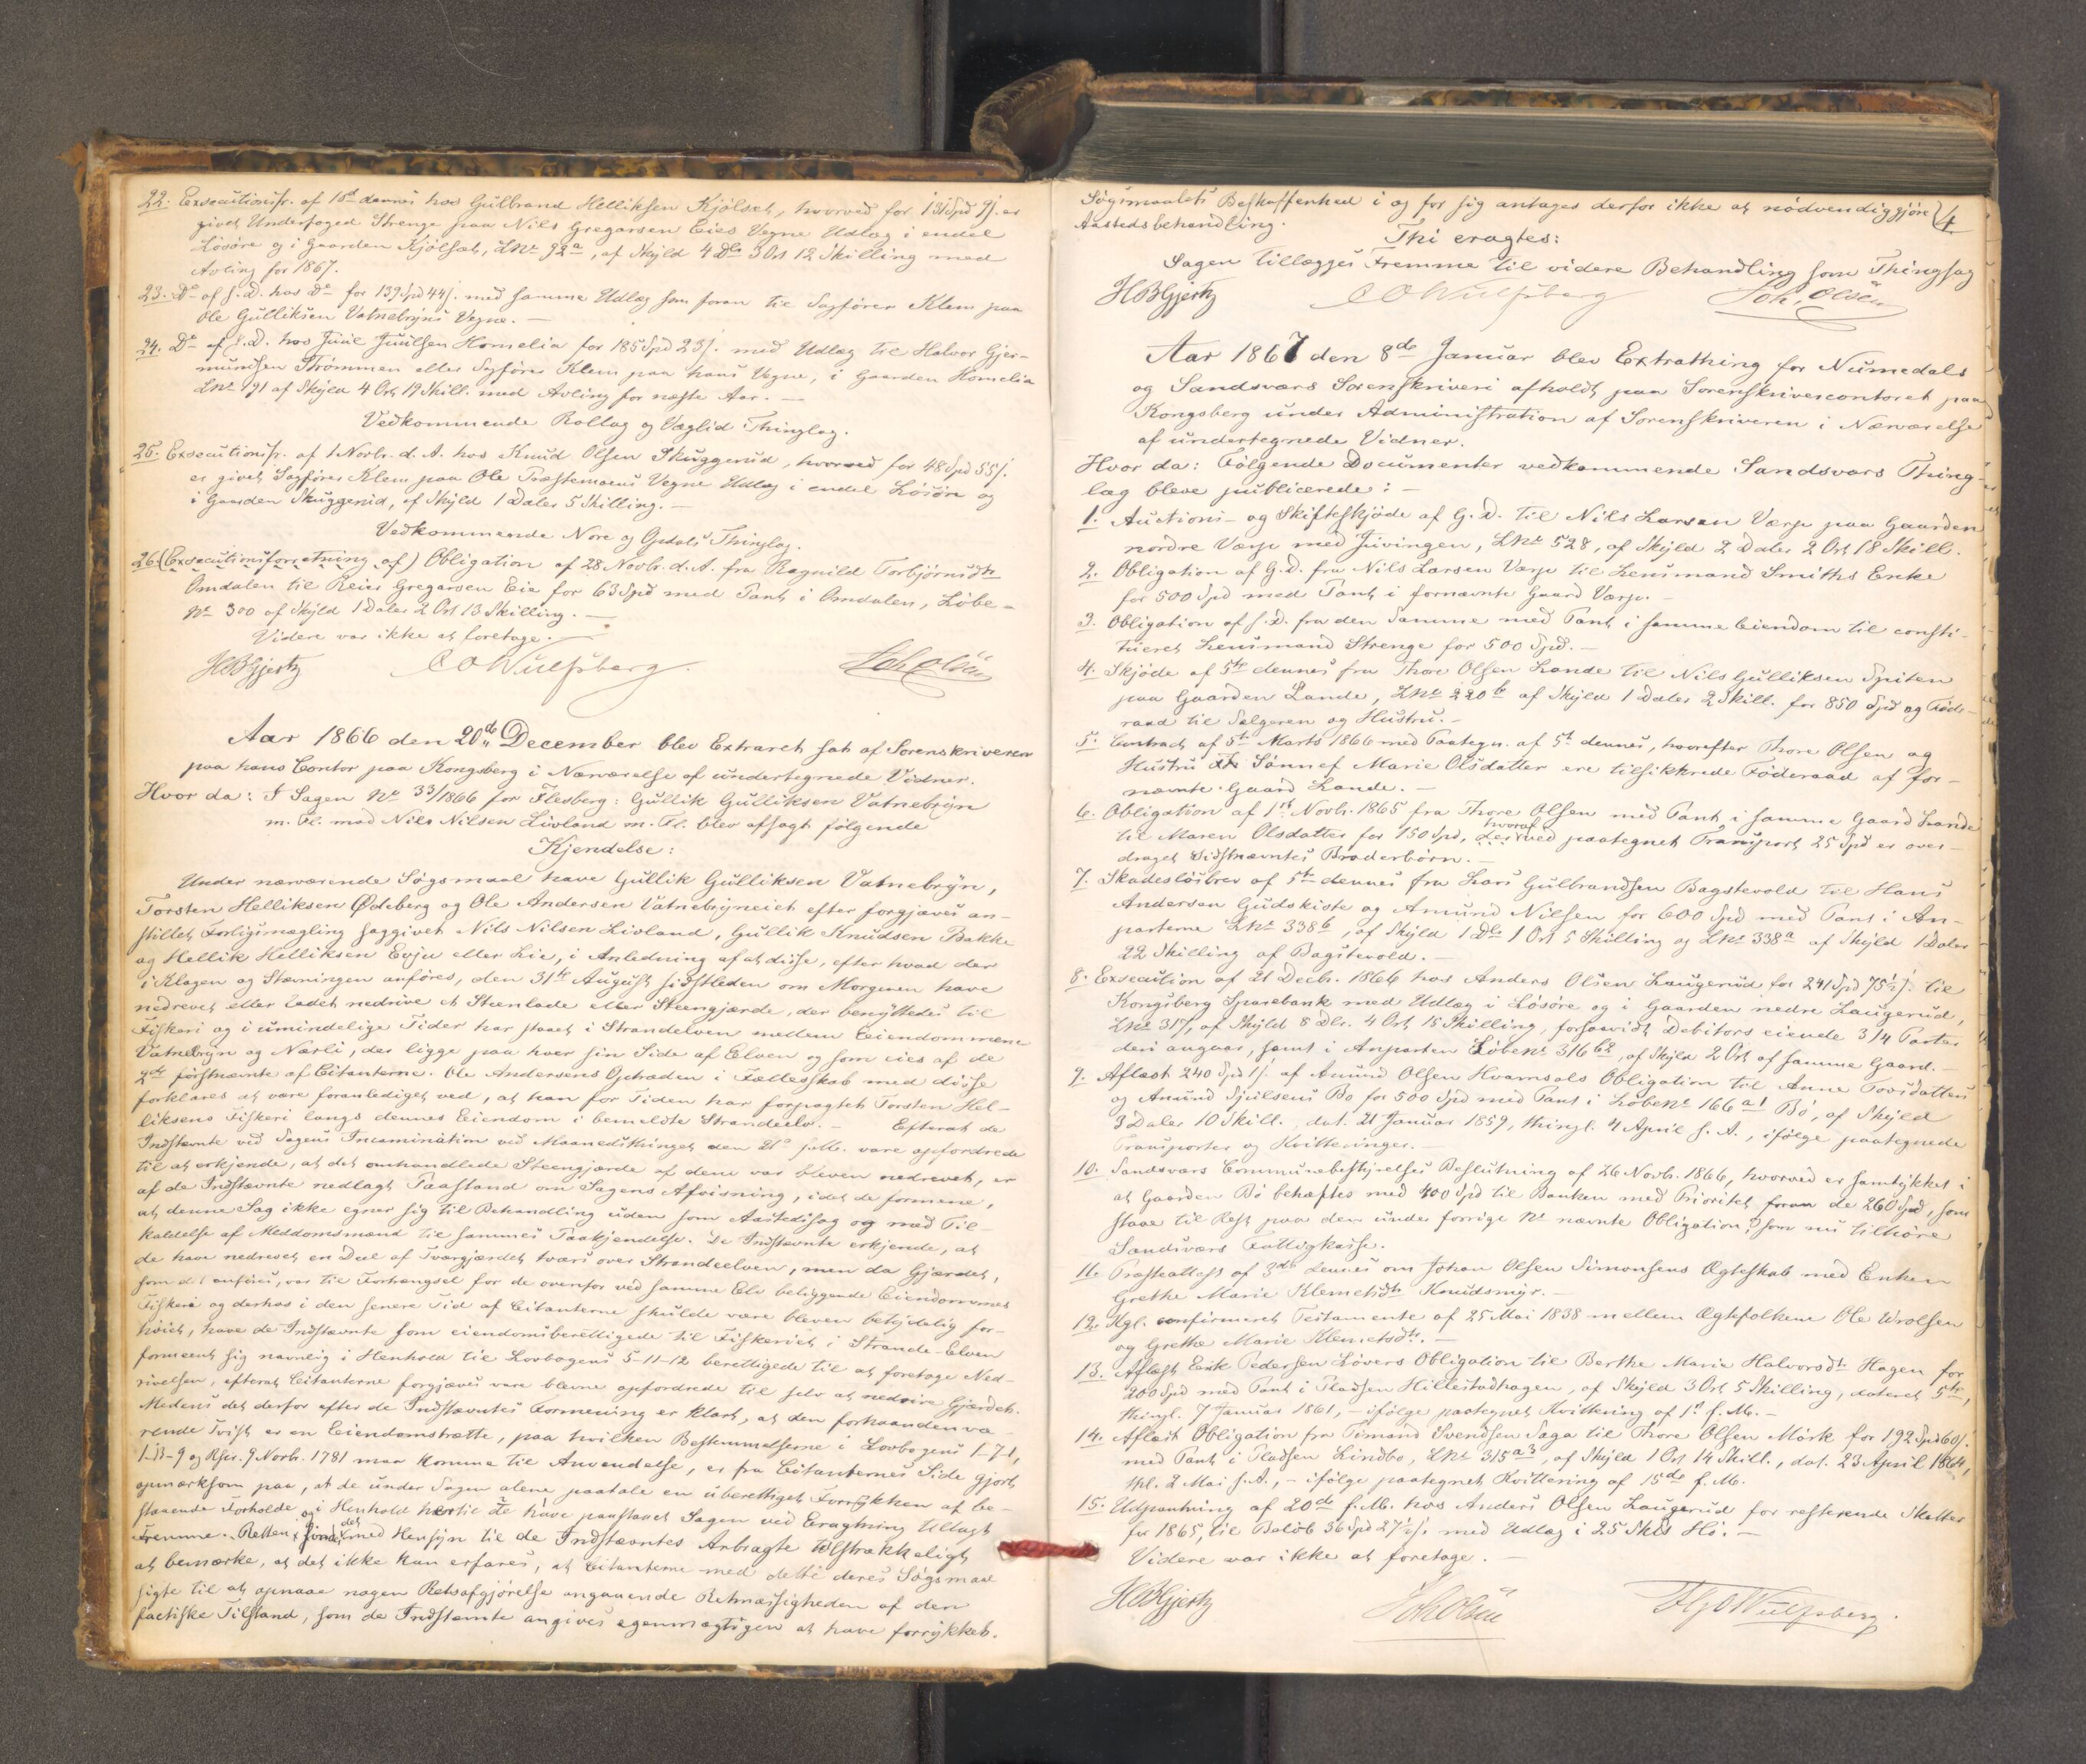 22. Executionsfr. af 15d dennes hos Gulbrand Helliksen Kjölset, hvorved for 131 Spd 9 s. er
givet Underfoged Strenge paa Nils Gregarsen Eies Vegne Udlæg i endel
Lösöre og i Gaarden Kjölsæt, LNr 92a, af Skyld 4 Dlr 3 Ort 12 Skilling med
Avling for 1867.
23. Do af s. D. hos Do for 139 Spd 44 s. med samme Udlæg som foran til Sagförer Klem paa
Ole Gulliksen Vatnebryns Vegne. —
24. Do af s. D. hos Juul Juulsen Homelia for 185 Spd 23 s. med Udlæg til Halvor Gjer-
mundsen Strömmen eller Sagförer Klem paa hans Vegne, i Gaarden Homelia
LNr 191 af Skyld 4 Ort 19 Skill. med Avling for næste Aar. —
Vedkommende Rollag og Væglid Thinglag.
25. Executionsfr. af 1 Novbr. d. A. hos Knud Olsen Skuggerud, hvorved for 48 Spd 55 s.
er givet Sagförer Klem paa Ole Præstemoens Vegne Udlæg i endel Lösöre og
i Gaarden Skuggerud, af Skyld 1 Daler 5 Skilling. —
Vedkommende Nore og Opdals Thinglag.
26. (Executionsforretning af) Obligation af 28 Novbr. d. A. fra Ragnild Torbjörnsdtr
Omdalen til Reier Gregarsen Eie for 63 Spd med Pant i Omdalen, Löbe-
Nr 300 af Skyld 1 Daler 2 Ort 13 Skilling. —
Videre var ikke at foretage. —
HBGjertz C O Wulfsberg. Joh. Olsen
Aar 1866 den 20de December blev Extraret sat af Sorenskriveren
paa hans Contor paa Kongsberg i Nærværelse af undertegnede Vidner.
Hvor da: I Sagen No 33/1866 for Flesberg: Gullik Gulliksen Vatnebryn
m. Fl. mod Nils Nilsen Livland m. Fl. blev afsagt følgende
Kjendelse:
Under nærværende Søgsmaal have Gullik Gulliksen Vatnebryn,
Torsten Helliksen Ødeberg og Ole Andersen Vatnebryneiet efter forgjæves an-
stillet Forligsmægling saggivet Nils Nilsen Livland, Gullik Knudsen Bakke
og Hellik Helliksen Evju eller Lie, i Anledning af at disse, efter hvad der
i Klagen og Stævningen anföres, den 31te August sidstleden om Morgenen have
nedrevet eller ladet nedrive et Steenlade eller Steengjærde, der benyttedes til
Fiskeri og i umindelige Tider har staaet i Strandelven mellem Eiendommene
Vatnebryn og Nærli, der ligge paa hver sin Side af Elven og som eies af de
2de förstnævnte af Citanterne. Ole Andersens Optræden i Fællesskab med disse
forklares at være foranlediget ved, at han for Tiden har forpagtet Torsten Hel-
liksens Fiskeri langs dennes Eiendom i bemeldte Strandeelv. — Efterat de
Indstævnte ved Sagens Incamination ved Maanedsthinget den 21de f. M. vare opfordrede
til at erkjende, at det omhandlede Steengjærde af dem var bleven nedrevet, er
af de Indstævnte nedlagt Paastand om Sagens Afvisning, idet de formene,
at denne Sag ikke egner sig til Behandling uden som Aastedssag og med Til-
kaldelse af Meddomsmænd til sammes Paakjendelse. De Indstævnte erkjende, at
de have nedrevet en Deel af Tværgjærdet tværs over Strandeelven, men da Gjærdet,
som det anföres, var til Forhængsel for de ovenfor ved samme Elv beliggende Eiendommes
Fiskeri og derhos i den senere Tid af Citanterne skulde være bleven betydelig for-
höiet, have de Indstævnte som eiendomsberettigede til Fiskeriet i Strande-Elven
formeent sig navnlig i Henhold til Lovbogens 5-11-12 berettigede til at foretage Ned-
rivelsen, efterat Citanterne forgjæves vare blevne opfordrede til selv at nedrive Gjærdet.
Medens det derfor efter de Indstævntes Formening er klart, at den forhaandenva-
rende Tvist er en Eiendomstrætte, paa hvilken Bestemmelserne i Lovbogens 1-7-1,
1-13-9 og Rpr. 9 Novbr. 1781 maa komme til Anvendelse, er fra Citanternes Side gjort
opmærksom paa, at de under Sagen alene paatale en uberettiget Forrykken af be-
staaende Forholde, og i Henhold hertil de have paastaaet Sagen ved Eragtning tillagt
Fremme. Retten finder det med Hensyn til de Indstævntes Anbragte tilstrækkeligt
at bemærke, at det ikke kan erfares, at Citanterne med dette deres Søgsmaal
sigte til at opnaae nogen Retsafgjørelse angaaende Retmæssigheden af den
factiske Tilstand, som de Indstævnte angives egenmægtigen at have forrykket.
Søgsmaalets Beskaffenhed i og for sig antages derfor ikke at nödvendiggjøre
Aastedsbehandling.
4
Thi eragtes:
Sagen tillægges Fremme til videre Behandling som Thingsag
HBGjertz C O Wulfsberg Joh. Olsen
Aar 1867 den 8de Januar blev Extrathing for Numedals
og Sandsværs Sorenskriveri afholdt paa Sorenskrivercontoret paa
Kongsberg under Administration af Sorenskriveren i Nærværelse
af undertegnede Vidner.
Hvor da: Følgende Documenter vedkommende Sandsværs Thing-
lag bleve publicerede: —
1. Auctions- og Skifteskjöde af G. D. til Nils Larsen Værp paa Gaarden
nordre Værp med Juvingen, LNr 528, af Skyld 2 Daler 2 Ort 18 Skill.
2. Obligation af G. D. fra Nils Larsen Værp til Lensmand Smiths Enke
for 500 Spd med Pant i fornævnte Gaard Værp. —
3. Obligation af s. D. fra den Samme med Pant i samme Eiendom til consti-
tueret Lensmand Strenge for 500 Spd. —
4. Skjöde af 5te dennes fra Thore Olsen Lande til Nils Gulliksen Spiten
paa Gaarden Lande, LNr 220b af Skyld 1 Daler 2 Skill. for 850 Spd og Föde-
raad til Sælgeren og Hustru. —
5. Contract af 5te Marts 1866 med Paategn. af 5te dennes, hvorefter Thore Olsen og
Hustru Sönnef Marie Olsdatter ere tilsikkrede Föderaad af for-
nævnte Gaard Lande. —
6. Obligation af 1ste Novbr. 1865 fra Thore Olsen med Pant i samme Gaard Lande
til Maren Olsdatter for 150 Spd, hvoraf ved paategnet Transport 25 Spd er over-
draget Sidstnævntes Broderbörn. —
7. Skadeslösbrev af 5te dennes fra Lars Gulbrandsen Bagstevold til Hans
Andersen Gudskiste og Amund Nilsen for 600 Spd med Pant i An-
parterne LNr 338b, af Skyld 1 Dlr 1 Ort 5 Skilling og LNr 338a af Skyld 1 Daler
22 Skilling af Bagstevold. —
8. Execution af 21 Decbr. 1866 hos Anders Olsen Laugerud for 241 Spd 75½ s. til
Kongsberg Sparebank med Udlæg i Lösöre og i Gaarden nedre Laugerud,
LNr 317, af Skyld 8 Dlr. 4 Ort 15 Skilling, forsaavidt Debitors eiende 3/4 Parter
deri angaar, samt i Anparten Löbenr 316 b2, af Skyld 2 Ort af samme Gaard. —
9. Aflæst 240 Spd 1 s. af Amund Olsen Hvamsals Obligation til Anne Tovsdatters
og Amund Spilsens Bo for 500 Spd med Pant i Löbenr 166 a1 Bö, af Skyld
3 Daler 10 Skill., dat. 21 Januar 1859, thingl. 4 April s. A., ifölge paategnede
Transporter og Kvitteringer. —
10. Sandsværs Communebestyrelses Beslutning af 26 Novbr. 1866, hvorved er samtykket i
at Gaarden Bö behæftes med 400 Spd til Banken med Prioritet foran de 260 Spd, som
staae til Rest paa den under forrige Nr nævnte Obligation, som nu tilhöre
Sandsværs Fattigkasse.
11. Præsteattest af 3die dennes om Johan Olsen Simonsens Ægteskab med Enken
Grethe Marie Klemetsdtr Knudsmyr. —
12. Kgl. confirmeret Testamente af 25 Mai 1838 mellem Ægtefolkene Ole Wrolsen
og Grethe Marie Klemetsdtr. —
13. Aflæst Erik Pedersen Lövers Obligation til Berthe Marie Halvorsdtr Hagen for
200 Spd med Pant i Pladsen Hillestadhagen, af Skyld 3 Ort 5 Skilling, dateret 5te,
thingl. 7 Januar 1861, — ifölge paategnet Kvittering af 1ste f. M. —
14. Aflæst Obligation fra Simand Svendsen Saga til Thore Olsen Mörk for 192 Spd 60 s.
med Pant i Pladsen Lindbo, LNr 315 a3, af Skyld 1 Ort 14 Skill., dat. 23 April 1864,
thl. 2 Mai s. A., — ifölge paategnet Kvittering af 15de f. M.
15. Udpantning af 20de f. M. hos Anders Olsen Laugerud for resterende Skatter
for 1865, til Belöb 36 Spd 27½ s. med Udlæg i 25 Skls Hö. —
Videre var ikke at foretage. —
HBGjertz Joh Olsen Wulfsberg.